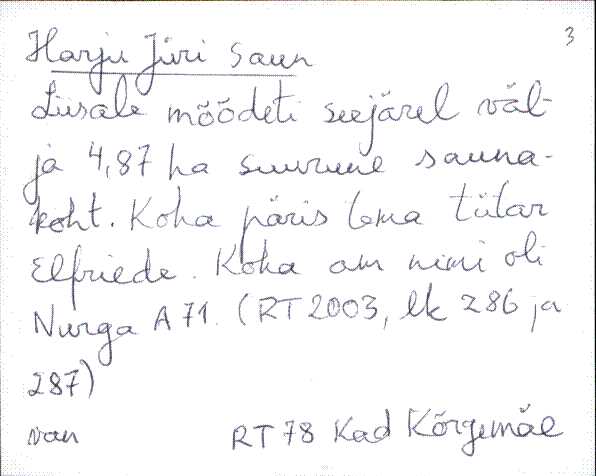 3
Harju Jüri saun
Liisale mõõdeti seejärel väl-
ja 4,87 ha suurune sauna-
koht. Koha päris tema tütar
Elfriede. Koha am nimi oli
Nurga A 71. (RT 2003, lk 286 ja
287)
van RT 78 Kad Kõrgemäe